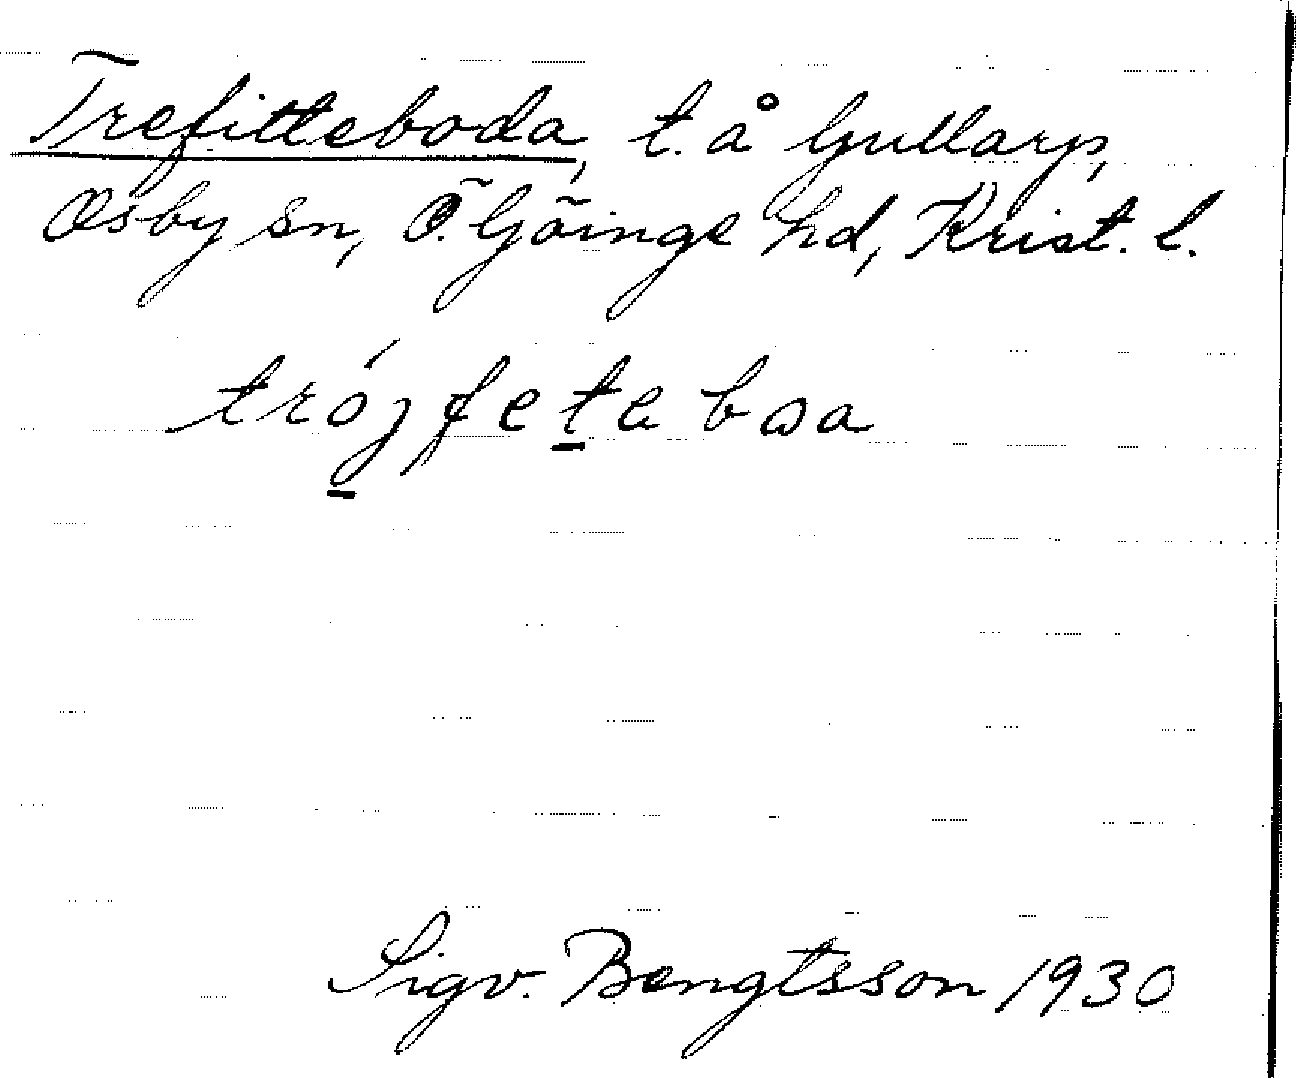 Trefitteboda, t. å Gullarp,
Osby sn, Ö. Göinge hd, Krist. l.
trójfetebɷa
Sigv. Bengtsson 1930